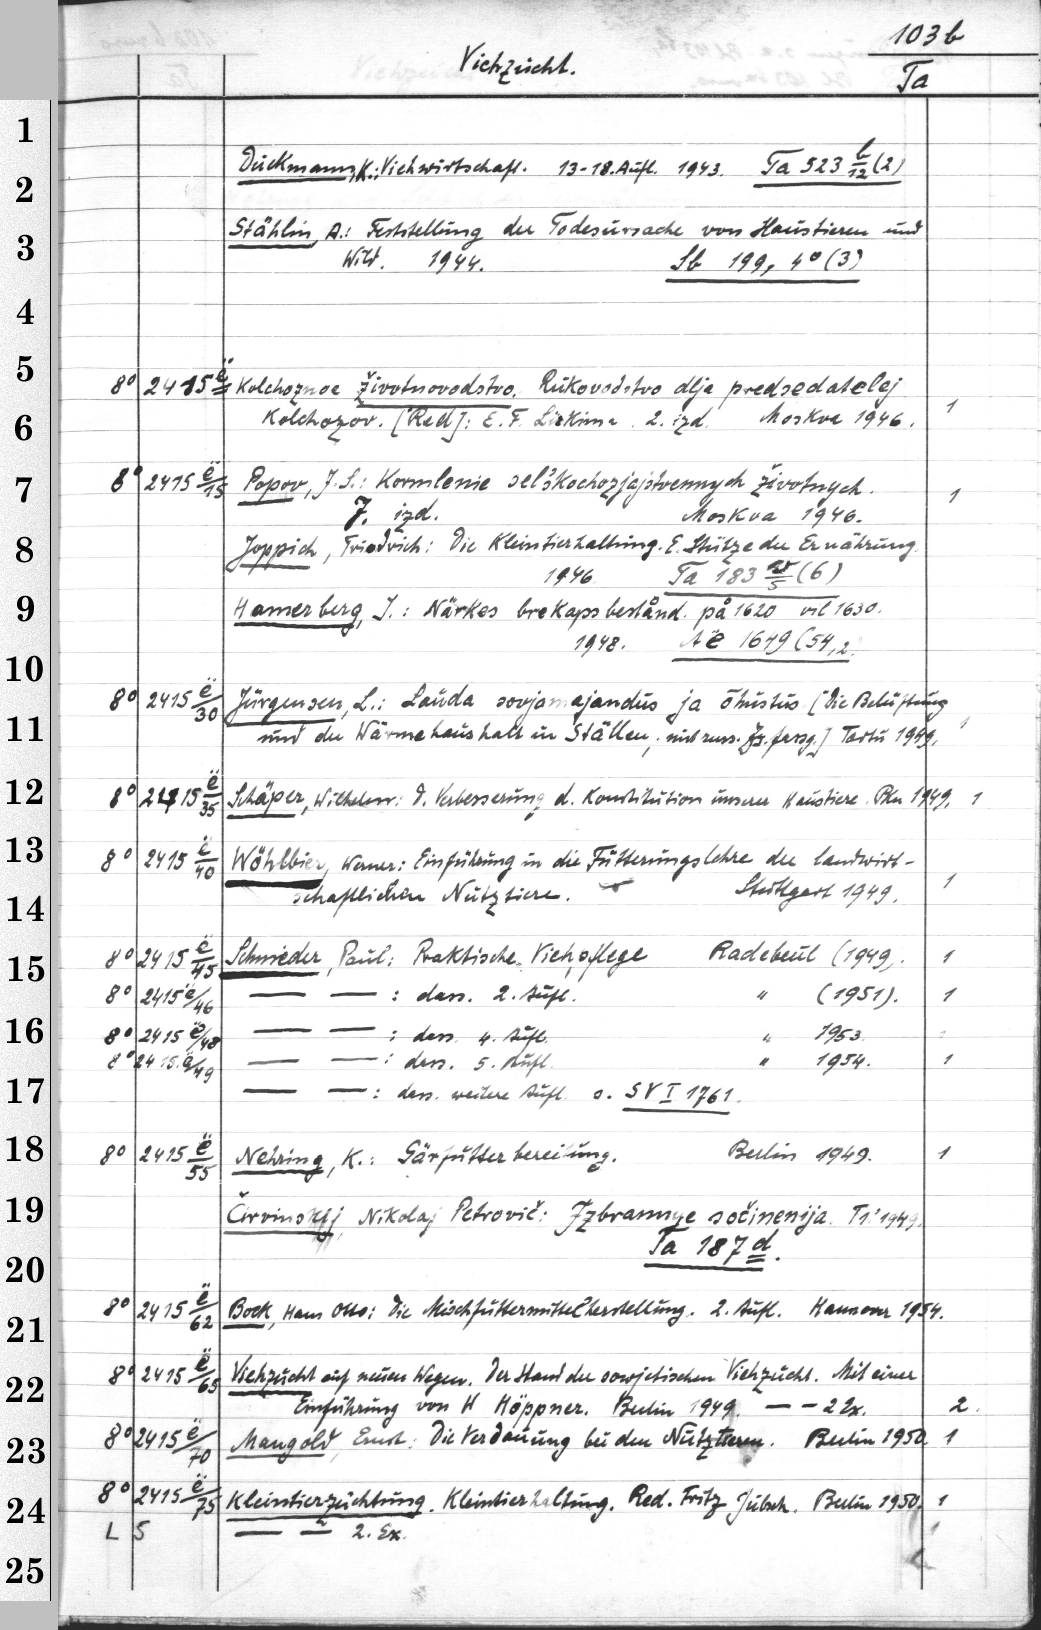 103b
Viehzucht.
Ta
1
2
3
4
5
6
7
8
9
10
11
12
13
14
15
16
17
18
19
20
21
22
23
24
25
Dückmann, K.: Viehwirtschaft. 13-18. Aufl. 1943. Ta 523 b/12 (2)
Stählin, A.: Feststellung der Todesursache von Haustieren und
Wild. 1944. Sb 199, 4° (3)
8° 2415 ë Kolchoznoe životnovodstvo. Rukovodstvo dlja predsedatelej
Kolchozov. [Red]: E. F. Liskuna. 2. izd. Moskva 1946. 1
8° 2415 ë/15 Popov, J. S.: Kormlenie sel'skochozjajstvennych životnych.
7. izd. Moskva 1946. 1
Joppich, Friedrich: Die Kleintierhaltung. E. Stütze der Ernährung.
1946 Ta 183 w/5 (6)
Hamerberg, I.: Närkes brekapsbestånd på 1620 1630.
1948. Aë 1649 (54,2
8° 2415 ë/30 Jürgensen, L.: Lauda sovjamajandus ja õhustus [Die Belüftung
und der Wärmehaushalt in Ställen, mit russ. Zs.fassg.] Tartu 1949, 1
8° 2415 ë/35 Schäper, Wilhelm: D. Verbesserung d. Konstitution unserer Haustiere. Bln 1949. 1
8° 2415 ë/40 Wöhlbier, Werner: Einführung in die Fütterungslehre der landwirt-
schaftlichen Nutztiere. Stuttgart 1949. 1
8° 2415 ë/45 Schmieder, Paul: Praktische Viehpflege Radebeul (1949). 1
8° 2415 ë/46 — — : dass. 2. Aufl. " (1951). 1
8° 2415 ë/48 — — : dass. 4. Aufl. " 1953.
8° 2415 ë/49 — — : dass. 5. Aufl. " 1954. 1
— — : dass. weitere Aufl. s. SV I 1761.
8° 2415 ë/55 Nehring, K.: Gärfutterbereitung. Berlin 1949. 1
Čirvinskij, Nikolaj Petrovič: Izbrannye sočinenija. T1: 1949.
Ta 187 d.
8° 2415 ë/62 Bock, Hans Otto: Die Mischfuttermittelherstellung. 2. Aufl. Hannover 1954.
8° 2415 ë/65 Viehzucht auf neuen Wegen. Der Stand der sowjetischen Viehzucht. Mit einer
Einführung von H Höppner. Berlin 1949. — — 2 Ex. 2.
8° 2415 ë/70 Mangold, Ernst: Die Verdauung bei den Nutztieren. Berlin 1950. 1
8° 2415 ë/75 Kleintierzüchtung. Kleintierhaltung. Red. Fritz Jubsch. Berlin 1950. 1
L S — — 2. Ex. 1